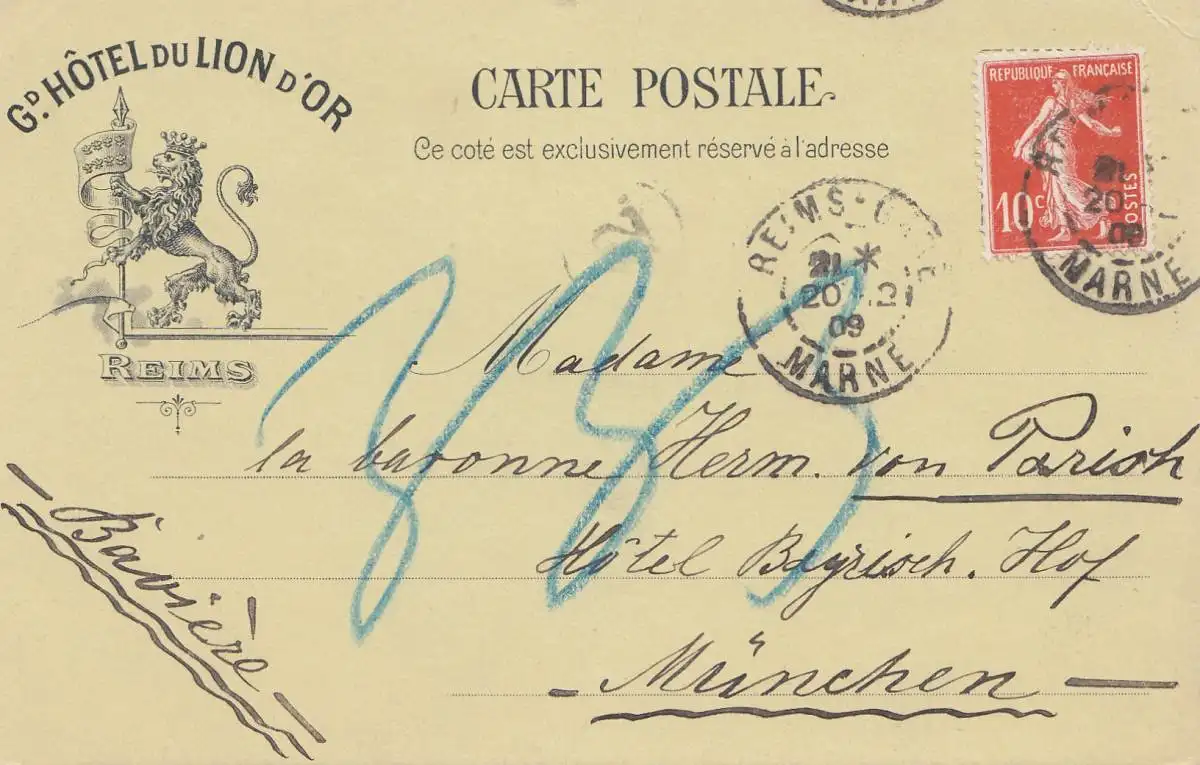 GD. HÔTEL DU LION D'OR
REIMS
CARTE POSTALE
Ce coté est exclusivement réservé à l'adresse
REPUBLIQUE FRANÇAISE
10c
POSTES
REIMS
20
09
MARNE
20
09
MARNE
Madame
la baronne Herm. von Parish
Hôtel Bayrisch. Hof
München
Bavière